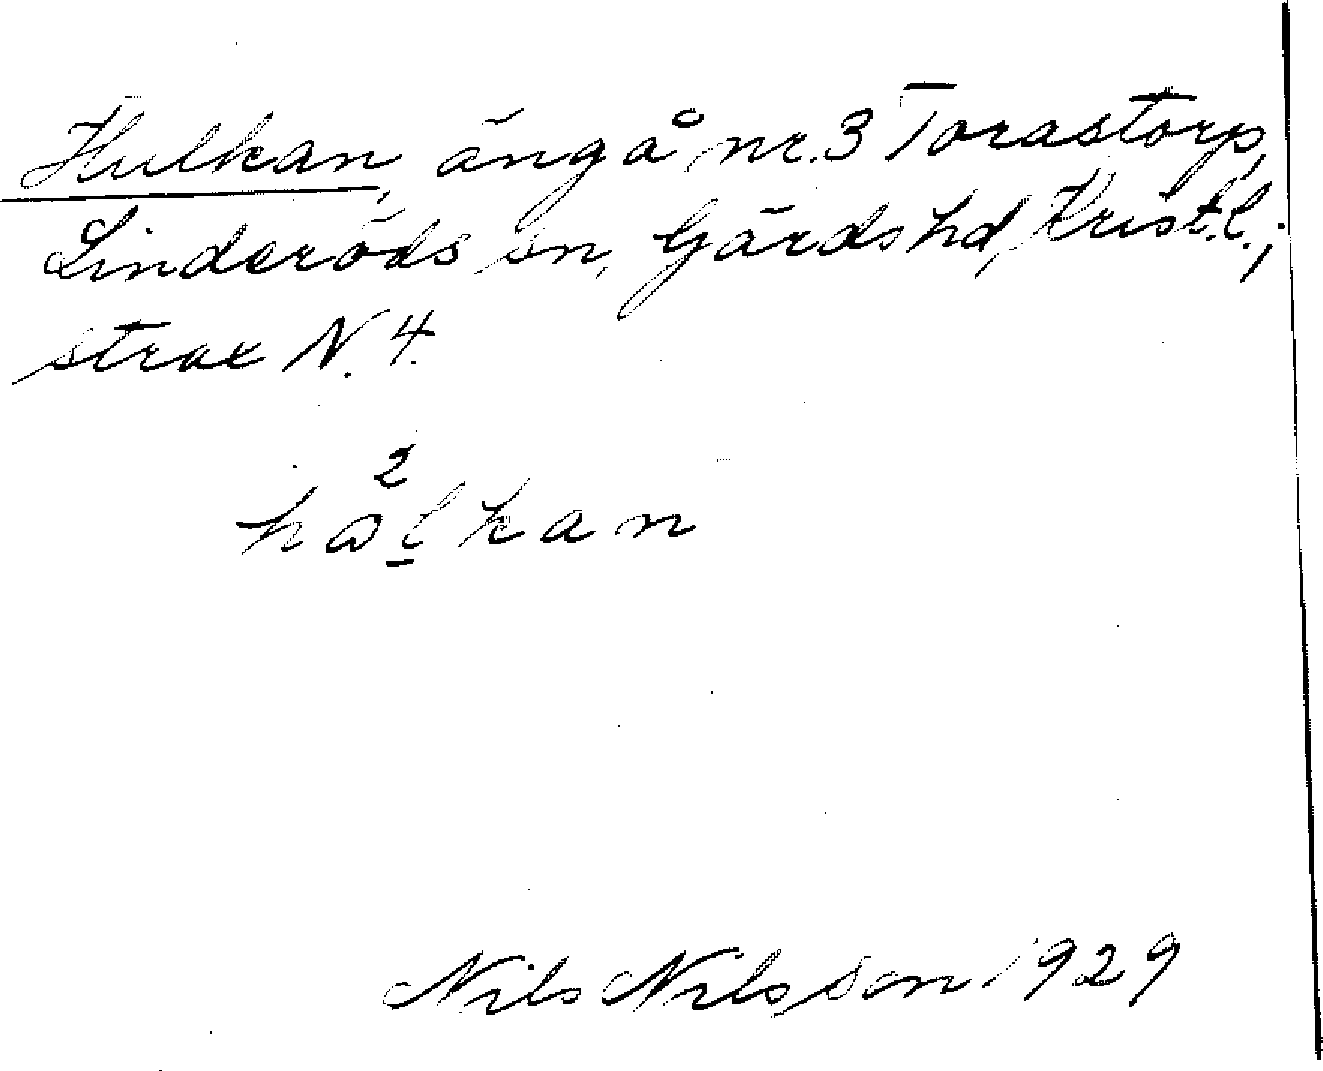 Hulkan, äng å nr. 3 Torastorp,
Linderöds sn, Gärds hd, Krist.l.;
strax N. 4.
2
hωlkan
Nils Nilsson 1929